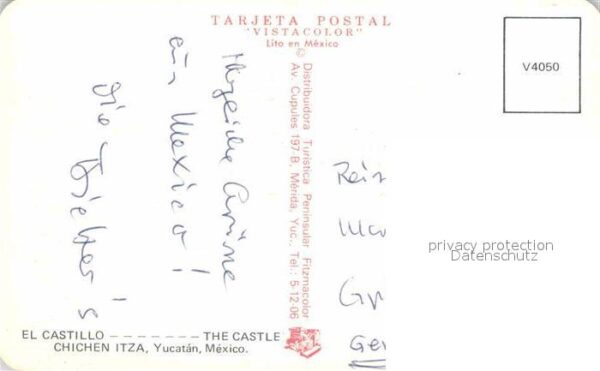 TARJETA POSTAL
"VISTACOLOR"
Lito en México
© Distribuidora Turística Peninsular Fitzmacolor
Av. Cupules 197-B, Mérida, Yuc., Tel.: 5-12-06
V4050
Herzliche Grüsse
aus Mexico!
die Dieter's
privacy protection
Datenschutz
EL CASTILLO – – – – – – – THE CASTLE
CHICHEN ITZA, Yucatán, México.